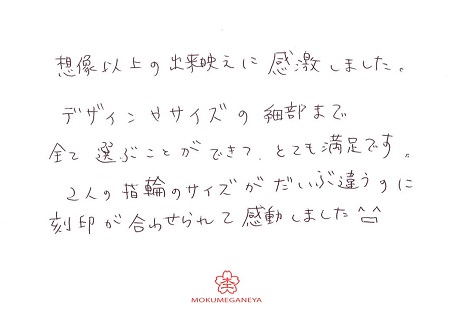 想像以上の出来映えに感激しました。
デザインやサイズの細部まで
全て選ぶことができて、とても満足です。
2人の指輪のサイズがだいぶ違うのに
刻印が合わせられて感動しました^^
MOKUMEGANEYA